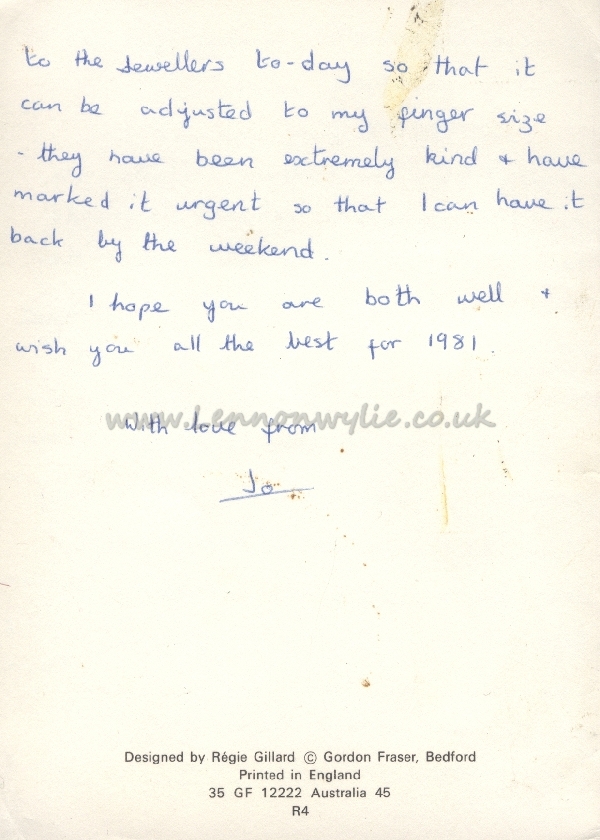 to the Jewellers to-day so that it
can be adjusted to my finger size
- they have been extremely kind + have
marked it urgent so that I can have it
back by the weekend.
I hope you are both well +
wish you all the best for 1981.
www.lennonwylie.co.uk
With love from
Jo
Designed by Régie Gillard © Gordon Fraser, Bedford
Printed in England
35 GF 12222 Australia 45
R4